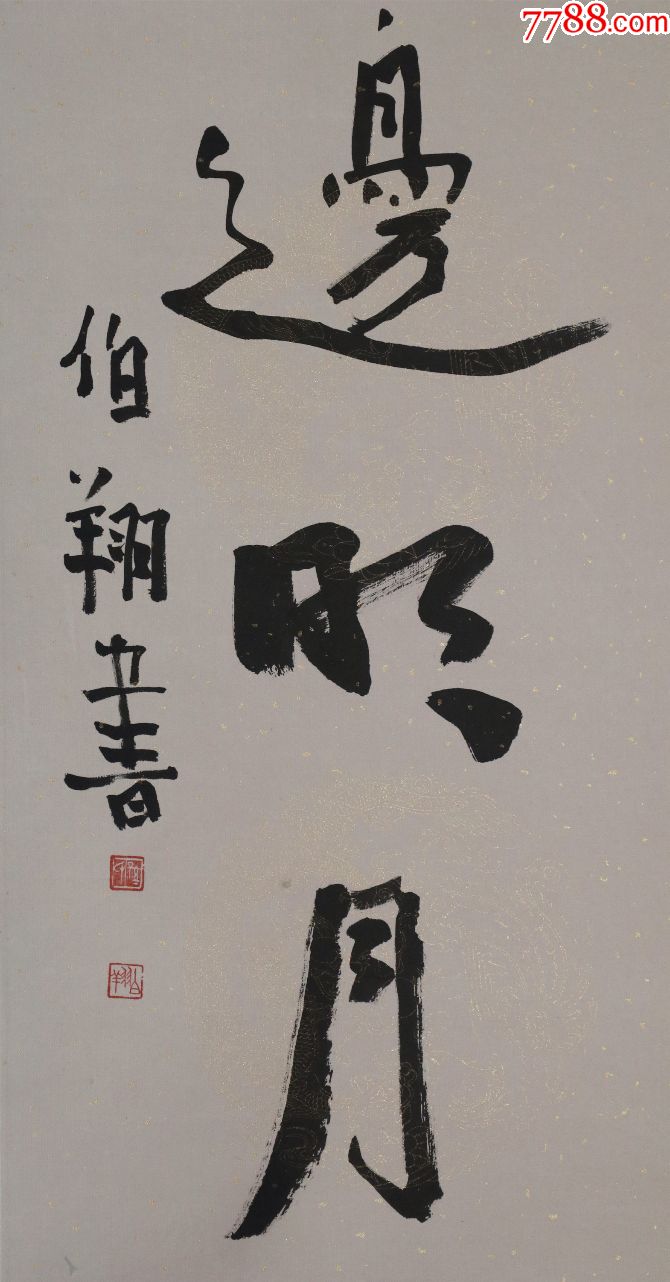 7788.com
邊明月
伯翔書
伯翔